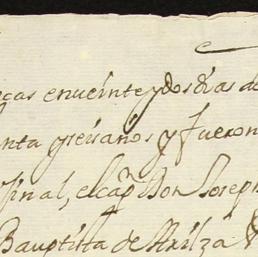 cas en veinte y dos dias de
nta y seis años y fueron
jinal, el cap.n Don Joseph
Bauptista de